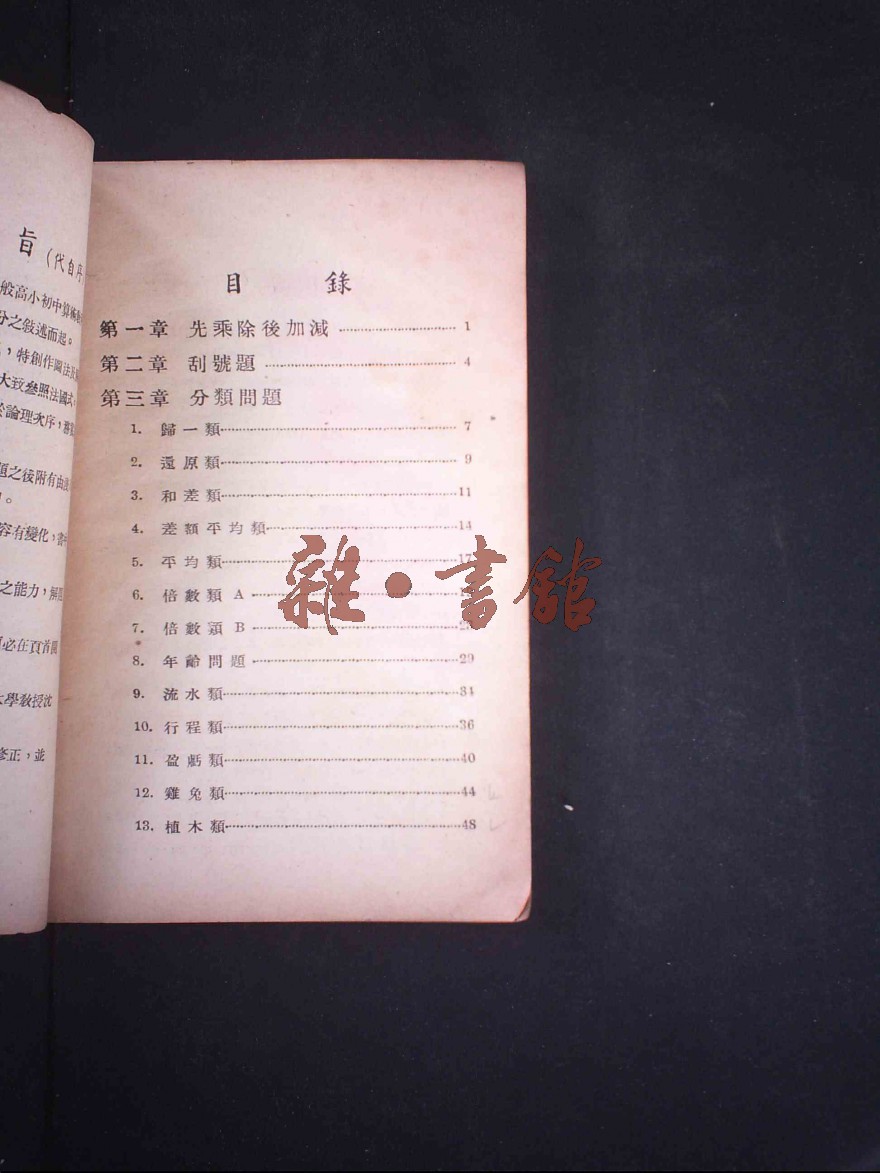 旨(代自序
般高小初中算術
分之敍述而起。
,特創作圖法及
大致參照法國式,
於論理次序,
題之後附有由
。
容有變化,書中
之能力,解
必在頁首
大學教授沈
修正,並
目 錄
第一章 先乘除後加減 1
第二章 刮號題 4
第三章 分類問題
1. 歸一類 7
2. 還原類 9
3. 和差類 11
4. 差額平均類 14
5. 平均類 17
6. 倍數類 A
7. 倍數類 B
8. 年齡問題 29
9. 流水類 34
10. 行程類 36
11. 盈虧類 40
12. 雞兔類 44
13. 植木類 48
雜·書館